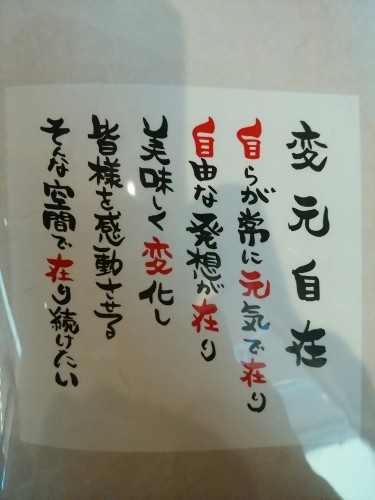 変元自在
自らが常に元気で在り
自由な発想が在り
美味しく変化し
皆様を感動させる
そんな空間で在り続けたい